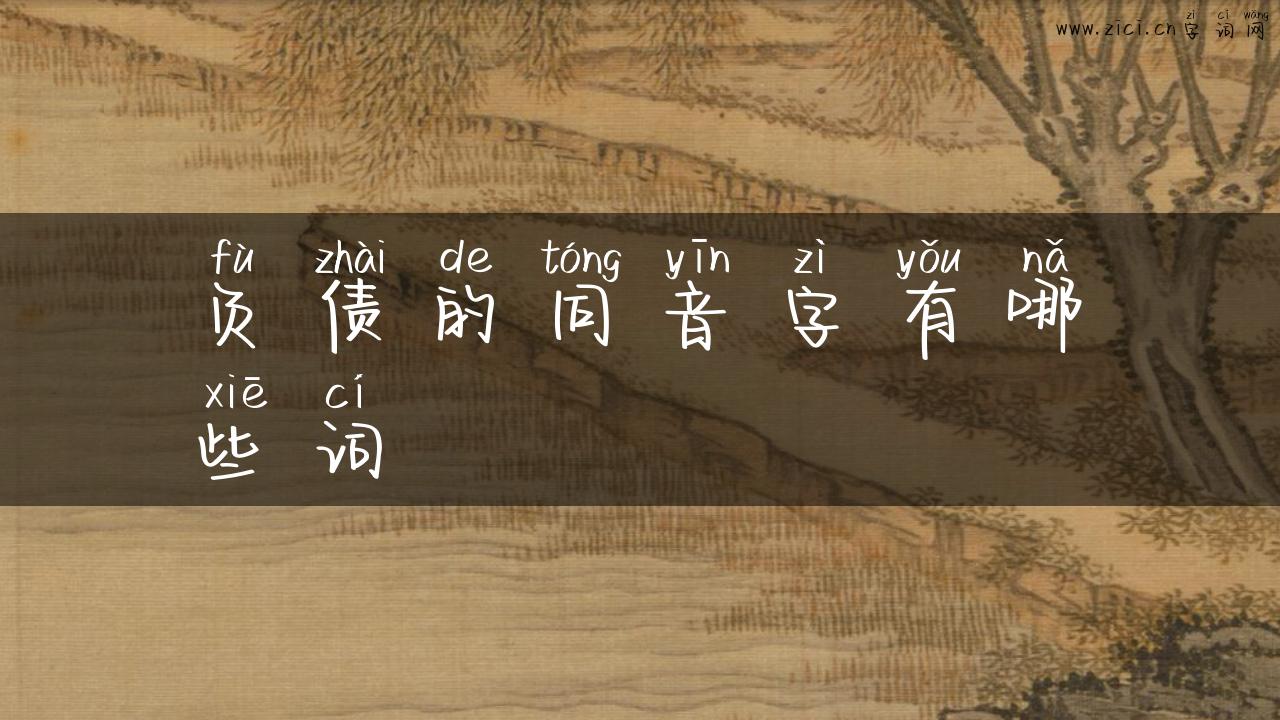 zì cí wǎng
www.zicí.cn字词网
fù zhài de tóng yīn zì yǒu nǎ
负债的同音字有哪
xiē cí
些词